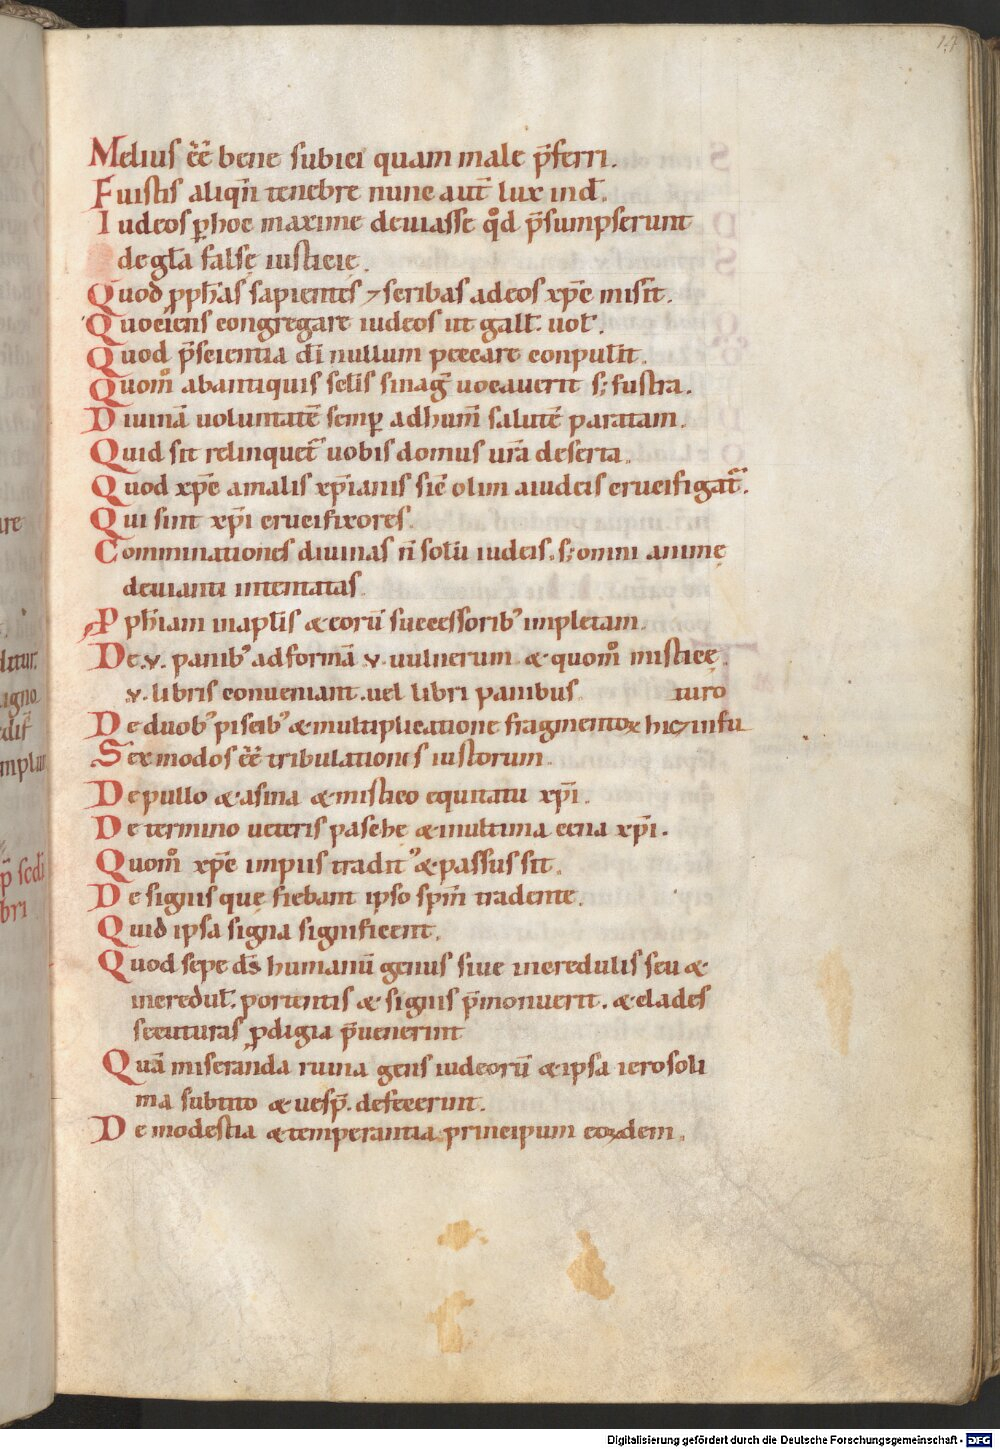 14
Melius ēē bene subici quam male p̄ferri.
Fuistis aliqn̄ tenebre nunc aut̄ lux in dn̄o.
Iudeos ꝑ hoc maxime deuiasse qͦd p̄sumpserunt
de gl̄a falsę iusticię.
Quod ꝓph̄as sapientes ⁊ scribas ad eos xp̄c misit̄.
Quociens congregare iudeos ut gall̄. uol̄.
Quod p̄scientia dī nullum peccare conpulit̄.
Quom̊ ab antiquis sc̄lis sinaḡ uocauerit s; fustra.
Diuinā uoluntatē semꝑ ad hum̄ salutē paratam.
Quid sit relinquet᷑ uobis domus ur̄a deserta.
Quod xp̄c a malis xp̄ianis sic̄ olim a iudeis crucifigat᷑.
Qui sint xp̄i crucifixores.
Comminationes diuinas n̄ solū iudeis. s; omni animę
deuianti intentatas.
Pph̄iam in apl̄is & eorū successorib᷒ impletam.
De .v. panib᷒ ad formā .v. uulnerum & quom̊ misticę
.v. libris conueniant. uel libri panibus. turo
De duob᷒ piscib᷒ & multiplicatione fragmentoꝝ hic ⁊ in fu
Sex modos ēē tribulationis iustorum.
De pullo & asina & mistico equitatu xp̄i.
De termino ueteris pasche & in ultima cena xp̄i.
Quom̊ xp̄c impiis tradit᷒ & passus sit.
De signis quę fiebant ipso spm̄ tradente.
Quid ipsa signa significent.
Quod sepe ds̄ humanū genus siue incredulis seu &
incredul̄. portentis & signis p̄monuerit. & clades
secuturas ꝓdigia p̄uenerint
Quā miseranda ruina gens iudeorū & ipsa ierosoli
ma subito & uesp̄. defecerint.
De modestia & temperantia principum eoꝝdem.
Digitalisierung gefördert durch die Deutsche Forschungsgemeinschaft - DFG